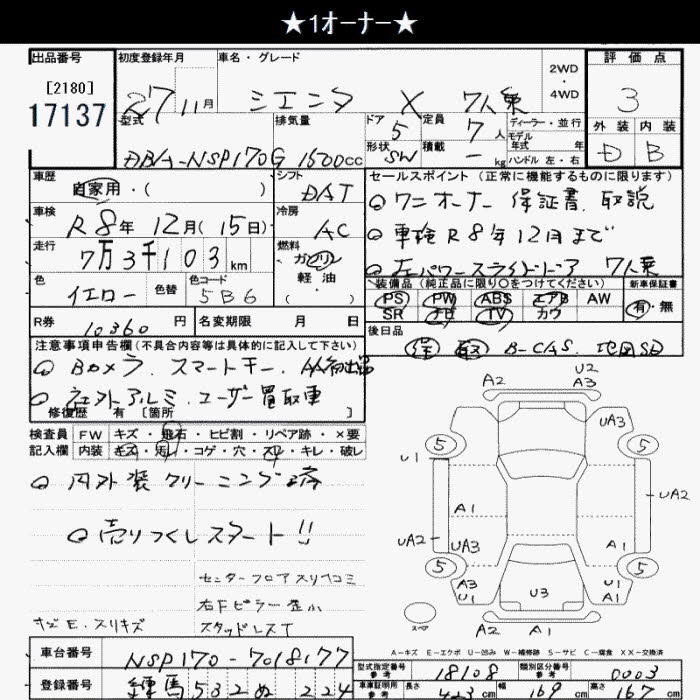 ★1オーナー★
出品番号 初度登録年月 車名・グレード 2WD・4WD 評価点
[2180]
17137
27 11月 シエンタ X 7人乗 3
型式 排気量 ドア 5 定員 7人 ディーラー・並行 外装 内装
モデル年式 年
DBA-NSP170G 1500cc 形状 SW 積載 - kg ハンドル 左・右 D B
車歴 シフト セールスポイント (正常に機能するものに限ります)
自家用・( ) DAT
ワンオーナー 保証書、取説
車検 R8年 12月(15日) 冷房 AC
車検R8年12月まで
走行 7万3千103km 燃料 ガソリン 軽油 ( ・ )
左パワースライドドア 7人乗
色 イエロー 色替 色コード 5B6
装備品 (純正品に限り〇をつけてください) 新車保証書
PS PW ABS エアB AW 有・無
SR TV カワ
R券 10360円 名変期限 月 日
後日品 保 取 B-CAS. 地図SD
注意事項申告欄(不具合内容等は具体的に記入して下さい)
Bカメラ. スマートキー. AA初出品
社外アルミ. ユーザー買取車
修復歴 有 [箇所 ]
検査員 FW キズ・飛石・ヒビ割・リペア跡・×要
記入欄 内装 キズ・汚レ・コゲ・穴・スレ・キレ・破レ
内外装クリーニング済
売りつくしスタート!!
センターフロアスリキコミ
右Fピラー歪小
キズE.スリキズ スタッドレスT
U2
A2 A3
UA3
5 5
U1
UA2
A1
UA2 UA3 A1
5 5
A3 U1
U1 A1
U3
スペア
A2 A1
A-キズ E-エクボ U-凹み W-補修跡 S-サビ C-腐食 XX-交換済
車台番号 NSP170-7018177
型式指定番号 参考 18108 類別区分番号 参考 0003
登録番号 練馬 532 ぬ 224
車庫証明用 参考 長さ 423cm 幅 169cm 高さ 167cm